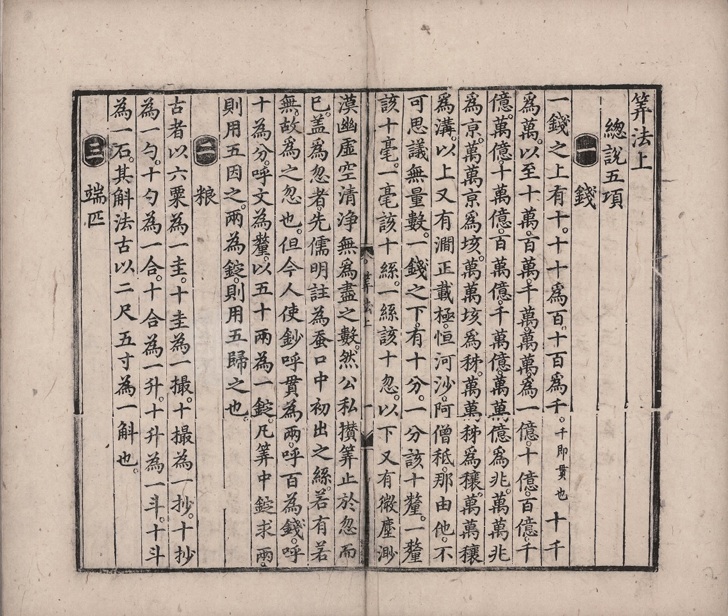 筭法上
總說五項
一 錢
一錢之上有十。十十爲百。十百爲千。千即貫也 十千
爲萬。以至十萬。百萬。千萬。萬萬爲一億。十億。百億。千
億。萬億。十萬億。百萬億。千萬億。萬萬億爲兆。萬萬兆
爲京。萬萬京爲垓。萬萬垓爲秭。萬萬秭爲穰。萬萬穰
爲溝。以上又有澗正載極。恒河沙。阿僧秪。那由他。不
可思議無量數。一錢之下。有十分。一分該十釐。一釐
該十毫。一毫該十絲。一絲該十忽。以下又有微塵渺
漠幽虛空清净無爲盡之數。然公私攢筭止於忽而
巳。盖爲忽者。先儒明註為蚕口中初出之絲。若有若
無。故為之忽也。但今人使鈔呼貫為兩。呼百為錢。呼
十為分。呼文為釐。以五十兩為一錠。凡筭中錠求兩。
則用五因之。兩為錠。則用五歸之也。
二 粮
古者以六粟為一圭。十圭為一撮。十撮為一抄。十抄
為一勺。十勺為一合。十合為一升。十升為一斗。十斗
為一石。其斛法古以二尺五寸為一斛也。
三 端匹
筭法上
一